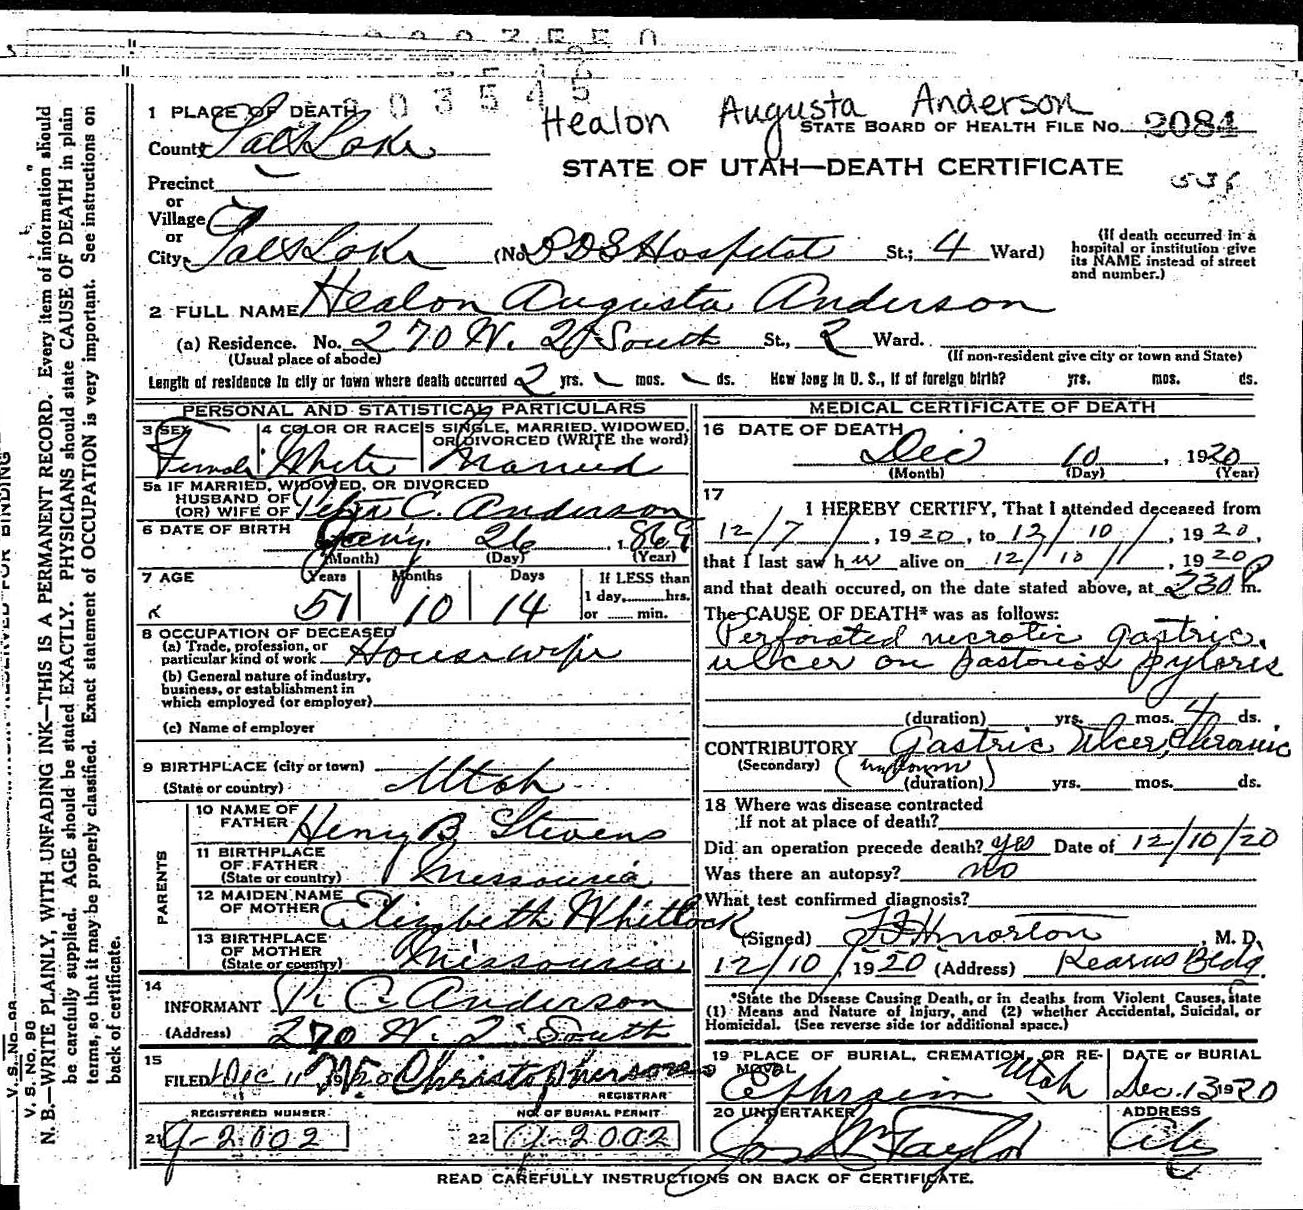 Healon Augusta Anderson
1 PLACE OF DEATH
STATE BOARD OF HEALTH FILE No. 2084
County Salt Lake
STATE OF UTAH—DEATH CERTIFICATE
Precinct
or
Village
or
City Salt Lake (No. LDS Hospital St.; 4 Ward)
(If death occurred in a hospital or institution give its NAME instead of street and number.)
2 FULL NAME Healon Augusta Anderson
(a) Residence. No. 270 W. 2d South St., 2 Ward.
(Usual place of abode) (If non-resident give city or town and State)
Length of residence in city or town where death occurred 2 yrs. mos. ds. How long in U. S., if of foreign birth? yrs. mos. ds.
PERSONAL AND STATISTICAL PARTICULARS
3 SEX 4 COLOR OR RACE 5 SINGLE, MARRIED, WIDOWED, OR DIVORCED (WRITE the word)
Female White Married
5a IF MARRIED, WIDOWED, OR DIVORCED
HUSBAND OF
(OR) WIFE OF Peter C. Anderson
6 DATE OF BIRTH 26, 1869
(Month) (Day) (Year)
7 AGE Years Months Days If LESS than
1 day, hrs.
51 10 14 or min.
8 OCCUPATION OF DECEASED
(a) Trade, profession, or
particular kind of work Housewife
(b) General nature of industry,
business, or establishment in
which employed (or employer)
(c) Name of employer
9 BIRTHPLACE (city or town)
(State or country) Utah
PARENTS
10 NAME OF
FATHER Henry B Stevens
11 BIRTHPLACE
OF FATHER
(State or country) Missouria
12 MAIDEN NAME
OF MOTHER Elizabeth Whitlock
13 BIRTHPLACE
OF MOTHER
(State or country) Missouria
14
INFORMANT P. C. Anderson
(Address) 270 W. 2 South
15
FILED Dec 11 1920 Christophersons
REGISTRAR
REGISTERED NUMBER NO. OF BURIAL PERMIT
21 g-2002 22 g-2002
MEDICAL CERTIFICATE OF DEATH
16 DATE OF DEATH
Dec 10, 1920
(Month) (Day) (Year)
17
I HEREBY CERTIFY, That I attended deceased from
12/7/, 1920, to 12/10/, 1920,
that I last saw her alive on 12/10/, 1920
and that death occured, on the date stated above, at 230 P m.
The CAUSE OF DEATH* was as follows:
Perforated necrotic gastric
ulcer on pyloris
(duration) yrs. mos. 4 ds.
CONTRIBUTORY Gastric Ulcer, Chronic
(Secondary) (unknown)
(duration) yrs. mos. ds.
18 Where was disease contracted
If not at place of death?
Did an operation precede death? yes Date of 12/10/20
Was there an autopsy? no
What test confirmed diagnosis?
(Signed) Horton, M. D.
12/10, 1920 (Address) Kearns Bldg.
*State the Disease Causing Death, or in deaths from Violent Causes, state
(1) Means and Nature of Injury, and (2) whether Accidental, Suicidal, or
Homicidal. (See reverse side for additional space.)
19 PLACE OF BURIAL, CREMATION, OR REMOVAL DATE OF BURIAL
Ephraim Utah Dec. 13 1920
20 UNDERTAKER ADDRESS
Taylor City
READ CAREFULLY INSTRUCTIONS ON BACK OF CERTIFICATE.
V. S. No. 98
N. B.—WRITE PLAINLY, WITH UNFADING INK—THIS IS A PERMANENT RECORD. Every item of information should
be carefully supplied. AGE should be stated EXACTLY. PHYSICIANS should state CAUSE OF DEATH in plain
terms, so that it may be properly classified. Exact statement of OCCUPATION is very important. See instructions on
back of certificate.